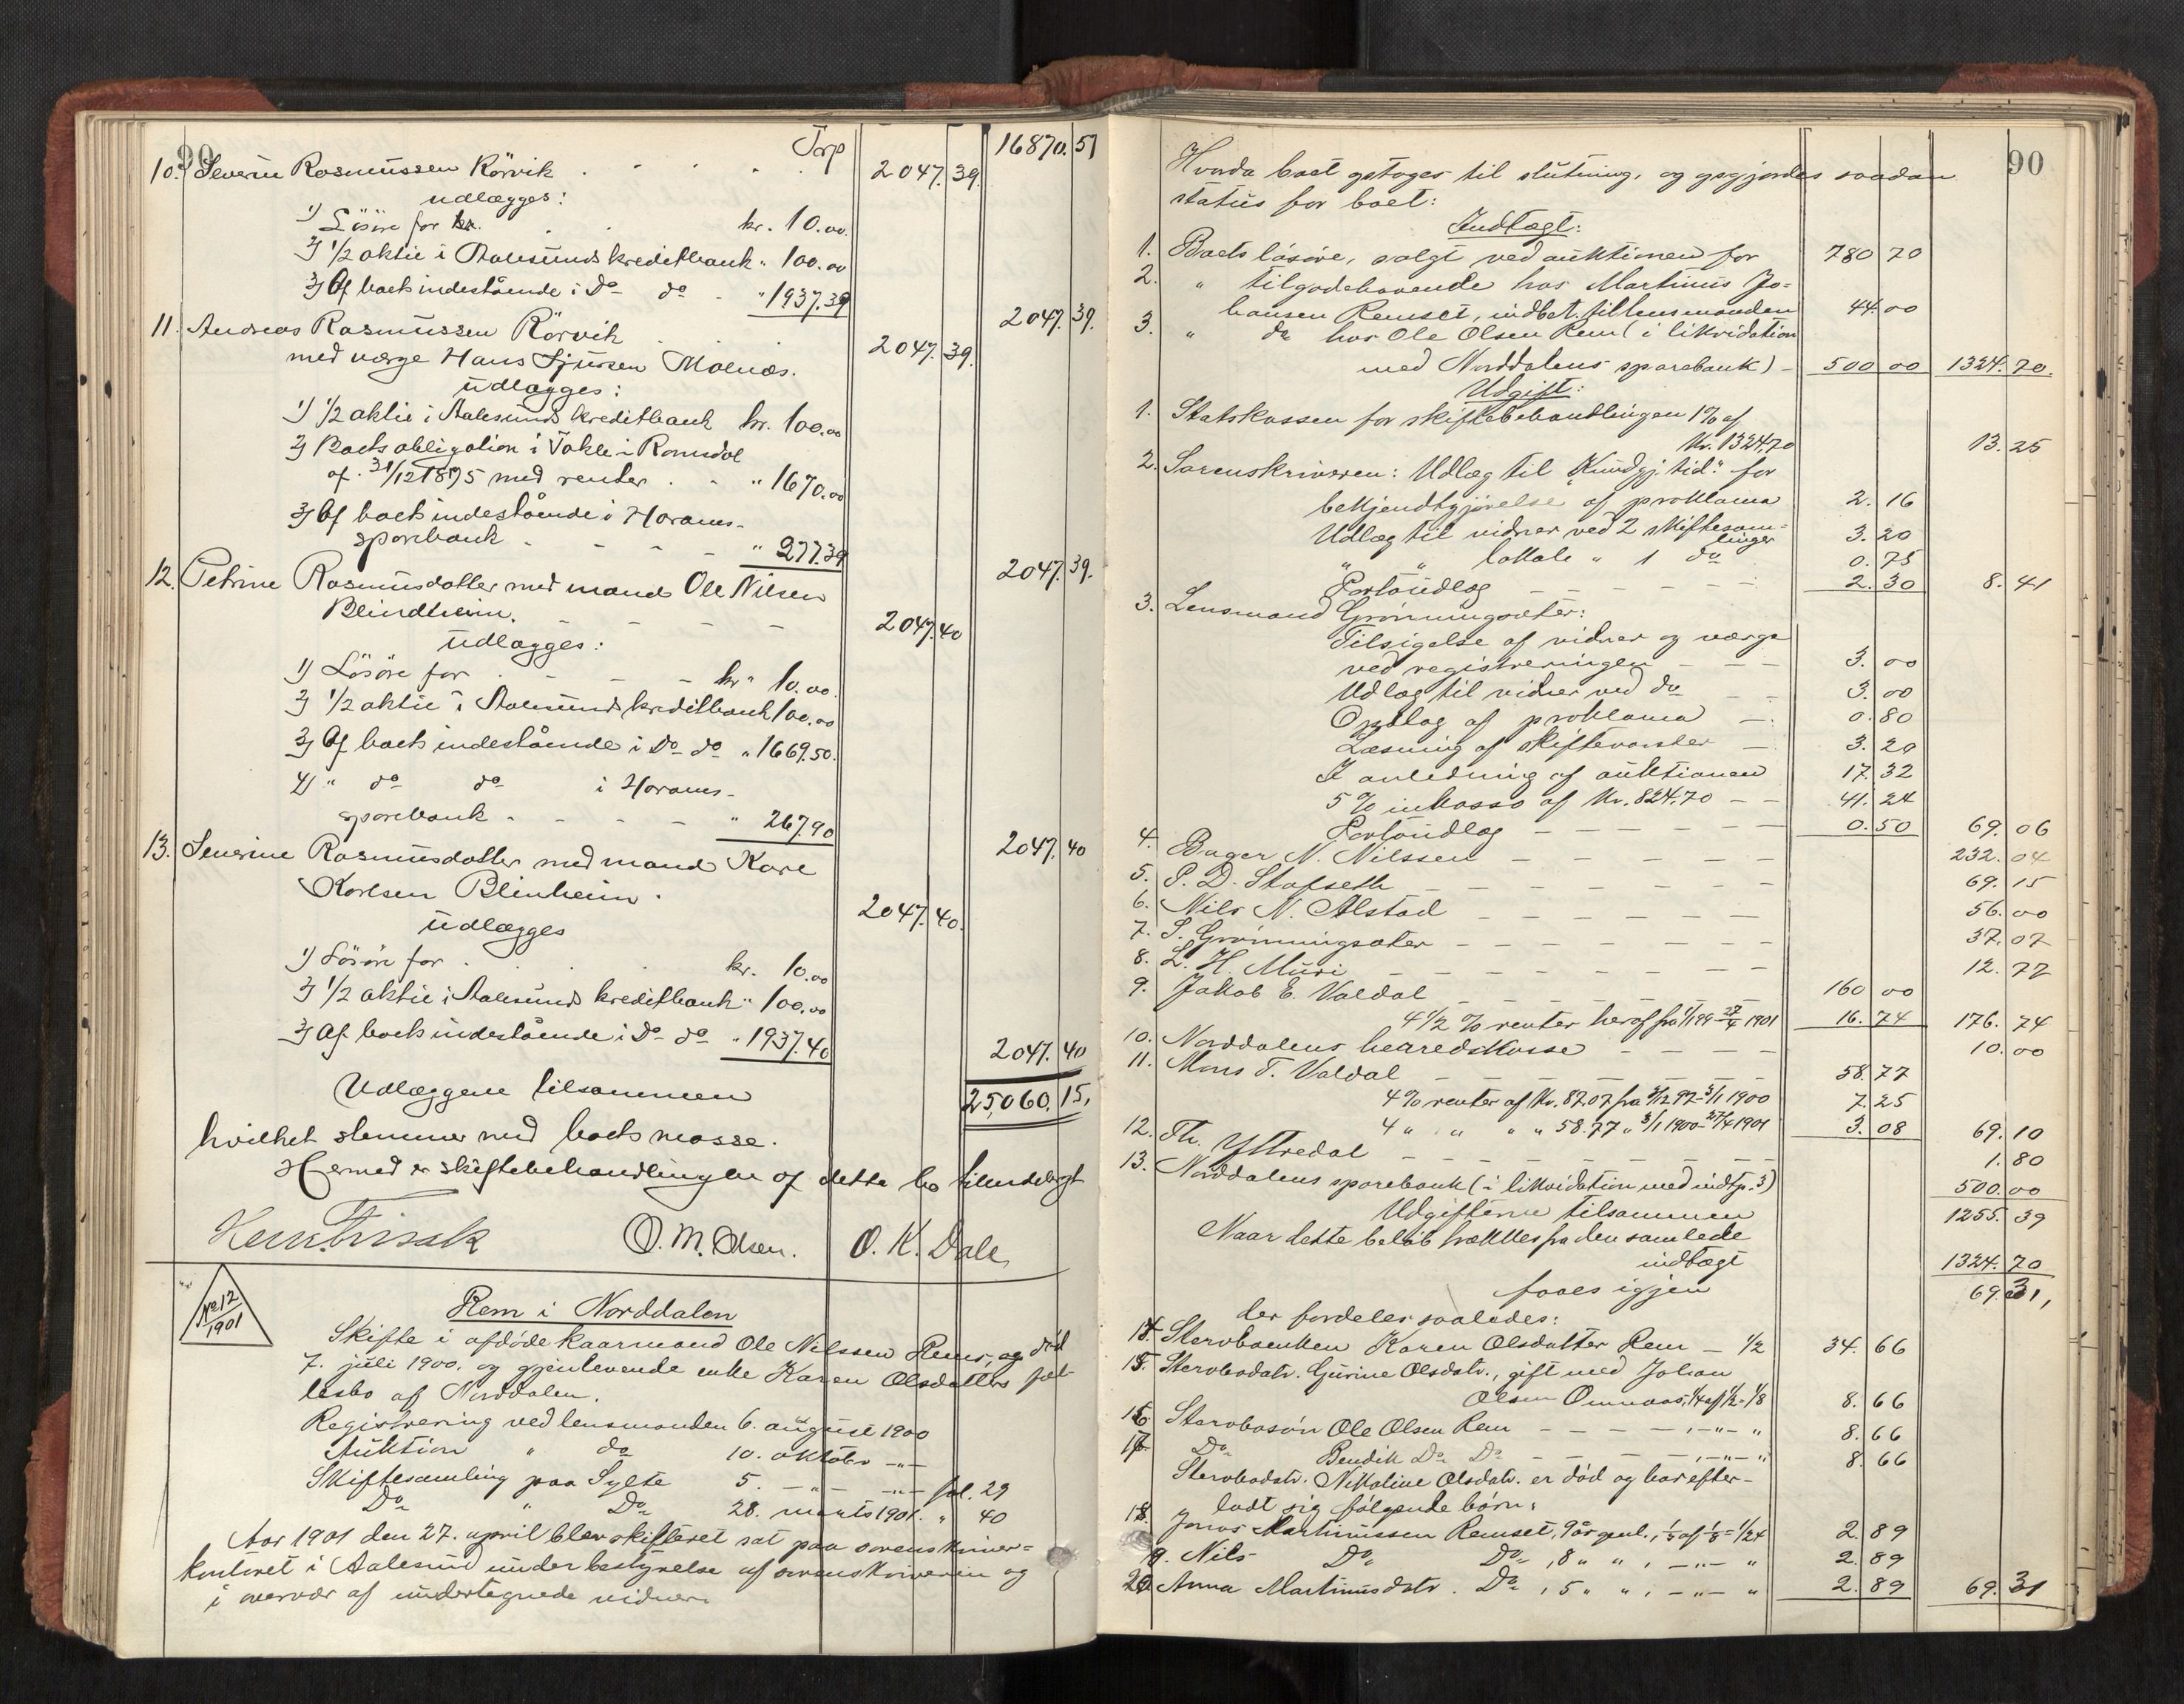 Trsp 16870.51
10. Severin Rasmussen Rörvik . . . . 2047.39.
udlægges:
1) Lösöre for kr. . . kr. 10.00.
2) 1/2 aktie i Aalesunds kreditbank " 100.00
3) Af boets indestående i Do do - " 1937.39
2047.39.
11. Andreas Rasmussen Rörvik . . . 2047.39.
med værge Hans Sjursen Molnæs.
udlægges:
1) 1/2 aktie i Aalesunds kreditbank kr. 100.00
2) Boets obligation i Vatle i Romsdal
af 31/12 1895 med renter . . " 1670.00
3) Af boets indestående i Harams-
sparebank - - - - " 277.39
2047.39.
12. Petrine Rasmusdatter med mand Ole Nilsen
Blindheim. - - - - 2047.40
udlægges:
1) Lösöre for . - - - kr " 10.00.
2) 1/2 aktie i Aalesunds kreditbank 100.00
3) Af boets indestående i Do do " 1669.50.
4) " do do i Harams-
sparebank - - - - " 267.90
2047.40
13. Severine Rasmusdatter med mand Kare
Karlsen Blinheim . 2047.40.
udlægges
1) Lösöre for . . . . kr. 10.00
2) 1/2 aktie i Aalesunds kreditbank " 100.00
3) Af boets indestående i Do do " 1937.40
2047.40
Udlæggene tilsammen 25,060.15,
hvilket stemmer med boets masse.
Hermed er skiftebehandlingen af dette bo tilendebragt
O. M. Olsen. O. K. Dale,
No 12
1901
Rem i Norddalen
Skifte i afdöde kaarmand Ole Nilssen Rems, død
7. juli 1900, og gjenlevende enke Karen Olsdatters fæl-
lesbo af Norddalen.
Registrering ved lensmanden 6. august 1900
Auktion " do 10. oktobr -"-
Skiftesamling paa Sylte 5. -"- -"- fol. 29
Do " Do 28. marts 1901. " 40
Aar 1901 den 27. april blev skifteret sat paa sorenskriver-
kontoret i Aalesund under bestyrelse af sorenskriveren og
i overvær af undertegnede vidner.
90
Hvorda boet optoges til slutning, og opgjordes saadan
status for boet:
Indtægt:
1. Boets løsøre, solgt ved auktionen for 780 70
2. " tilgodehavende hos Martinus Jo-
hansen Remset, indbet. til lensmanden 44.00
3. " do hos Ole Olsen Rem (i likvidation
med Norddalens sparebank) - 500 00 1324.70.
Udgift:
1. Statskassen for skiftebehandlingen 1% af
Kr. 1324.70 13.25
2. Sorenskriveren: Udlæg til "Kundgj.tid." for
bekjendtgjørelse af proklama 2.16
Udlæg til vidner ved 2 skiftesam-
linger 3.20
" " lokale " 1 do 0.75
Portoudlæg - - - - - 2.30 8.41
3. Lensmand Grønningsæter:
Tilsigelse af vidner og værge
ved registreringen - - - 3.00
Udlæg til vidner ved do - - 3.00
Opslag af proklama - . 0.80
Læsning af skiftevarsler - 3.20
I anledning af auktionen 17.32
5% inkasso af Kr. 824.70 - - 41.24
Portoudlæg - - - - - - 0.50 69.06
4. Bager N. Nilssen - - - - - - 232.04
5. P. D. Stafseth - - - - - - - 69.15
6. Nils N. Alstad - - - - - - 56.00
7. S. Grønningsæter - - - - - - 37.07
8. L. H. Muri - - - - - - - - 12.77
9. Jakob E. Valdal - - - - - - 160 00
4 1/2 % renter heraf fra 1/1 99 - 27/4 1901 16.74 176.74
10. Norddalens heredskasse - - - - 10.00
11. Mons T. Valdal - - - - - - - 58.77
4% renter af Kr. 87.07 fra 3/12 97 - 3/1 1900 7.25
4 " " " " 58.77 " 3/1 1900 - 27/4 1901 3.08 69.10
12. Th. Yttredal - - - - - - - 1.80
13. Norddalens sparebank (i likvidation med indtp. 3) 500.00
Udgifterne tilsammen 1255.39
Naar dette beløb trækkes fra den samlede
indtægt 1324.70
faaes igjen 69.31,
der fordeles saaledes:
14. Stervboenken Karen Olsdatter Rem - 1/2 34.66
15. Stervbodatr. Gurine Olsdatr., gift med Johan
Olsen Omenaas, 1/4 af 1/2 = 1/8 8.66
16. Stervbosøn Ole Olsen Rem - - - - , -"- " 8.66
17. Do Bendik Do Do - - - - - , -"- " 8.66
Stervbodatr. Nikoline Olsdatr. er død og har efter-
ladt sig følgende børn:
18. Jonas Martinussen Remset, 9 år gml., 1/3 af 1/8 = 1/24 2.89
19. Nils Do Do , 8 " " , -"- " 2.89
20. Anna Martinusdatr. Do , 5 " " , -"- " 2.89 69.31